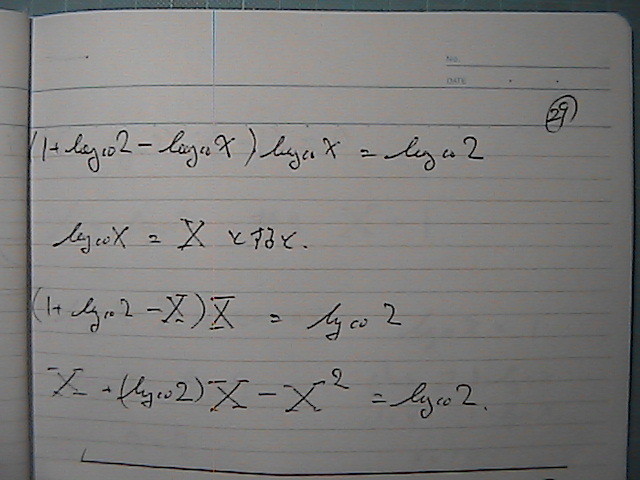 No.
DATE
29
(1+log₁₀2-log₁₀x)log₁₀x = log₁₀2
log₁₀x = X とすると.
(1+log₁₀2-X)X = log₁₀2
X+(log₁₀2)X-X² = log₁₀2.